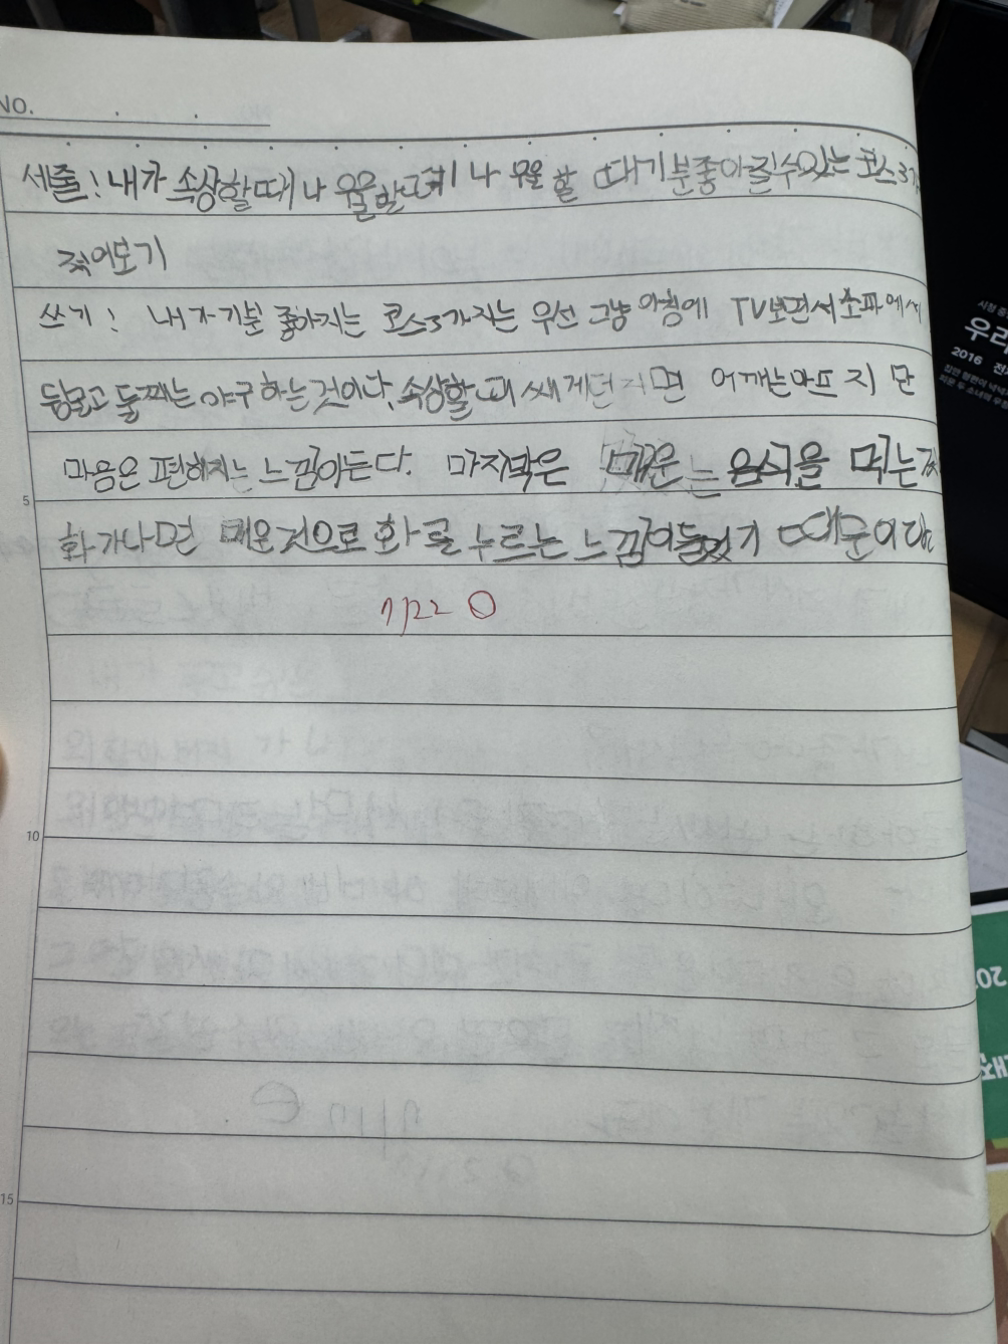 NO.
세줄! 내가 속상할때나 우울할때나 우울할 때 기분좋아질수있는 코스3가
적어보기
쓰기! 내가기분 좋아지는 코스3가지는 우선 그냥 아침에 TV보면서 소파에서
뒹굴고 둘째는 야구하는것이다. 속상할때 쌔게던지면 어깨는아프지만
마음은 편해지는 느낌이든다. 마지막은 매운 음식을 먹는것
화가나면 매운것으로 화를 누르는 느낌이들었기 때문이다
5
10
15
1/22
우리
2016